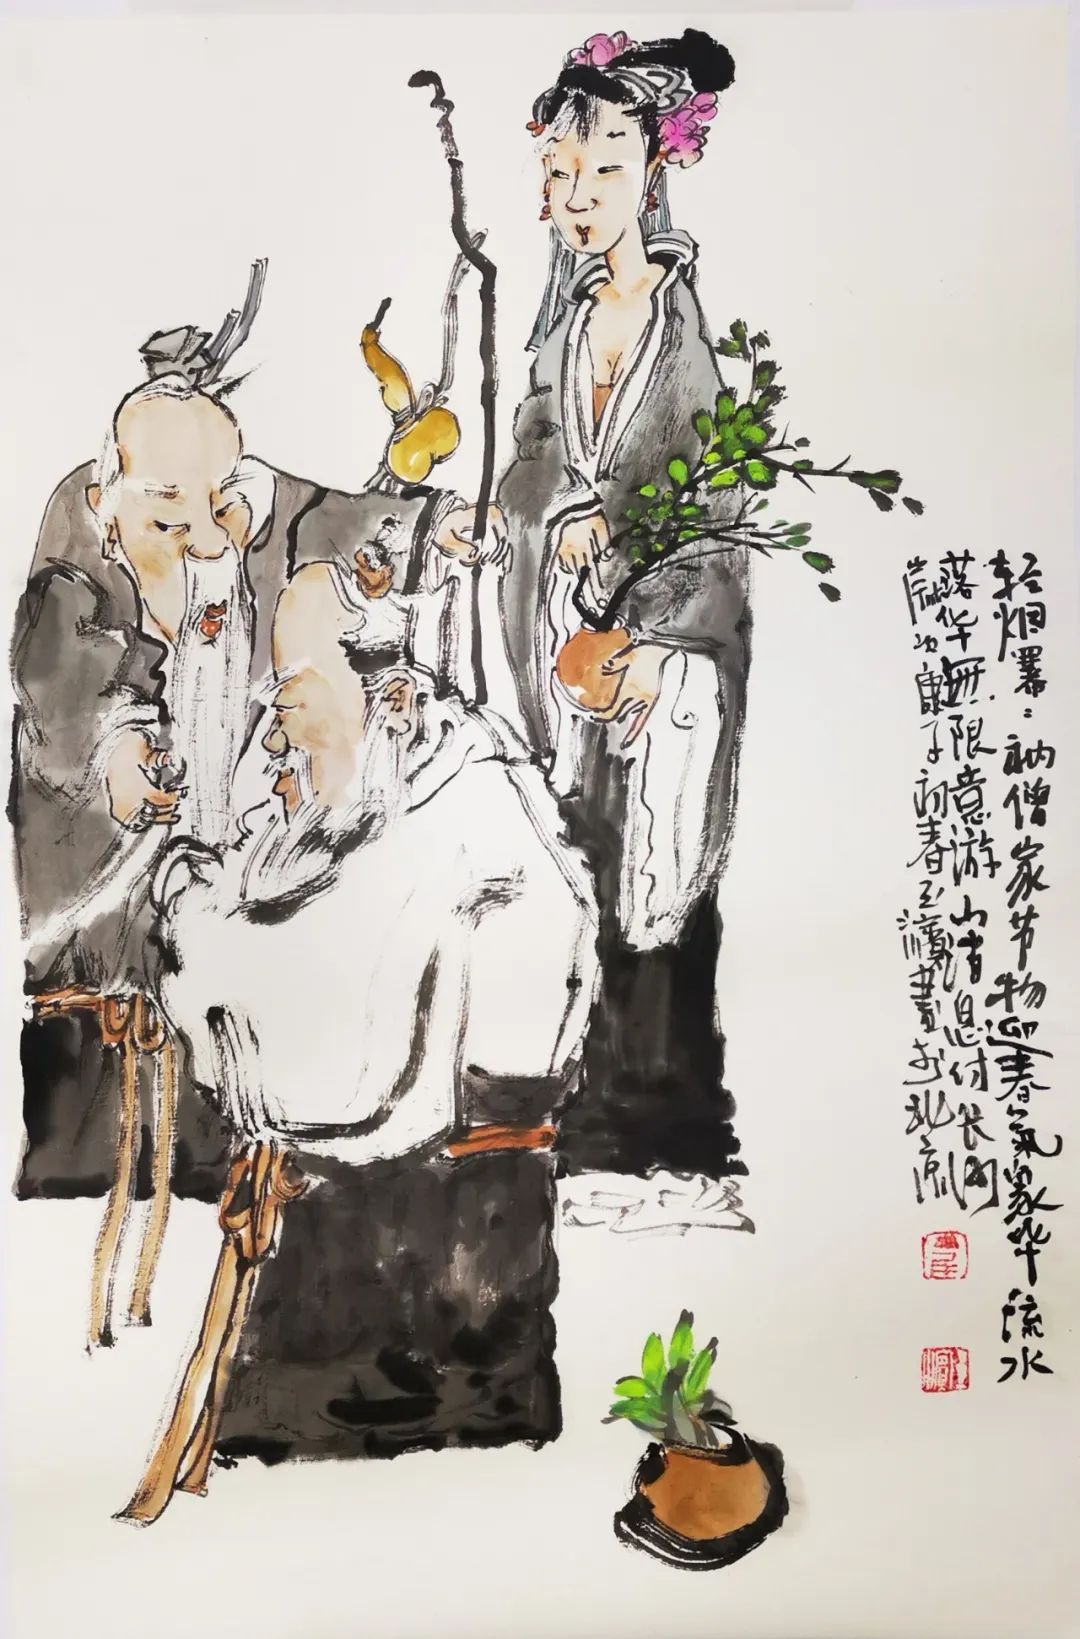 轻烟幂〻衲僧家节物迎春气象华流水
落华無限意游山消息付长河
岁次庚子初春玉濱畫於北京